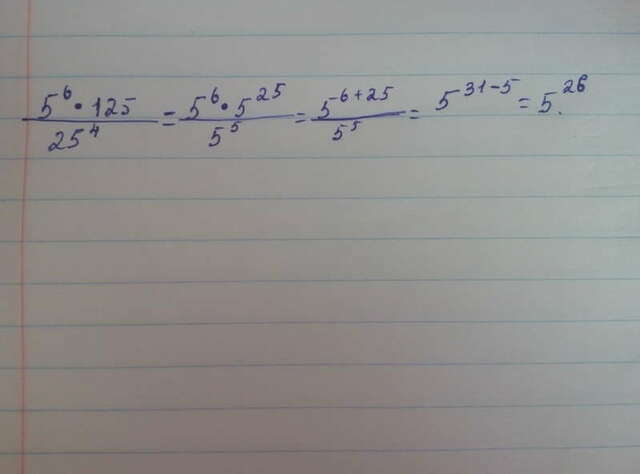 5^6 • 125 / 25^4 = 5^6 • 5^25 / 5^5 = 5^6+25 / 5^5 = 5^31-5 = 5^26.